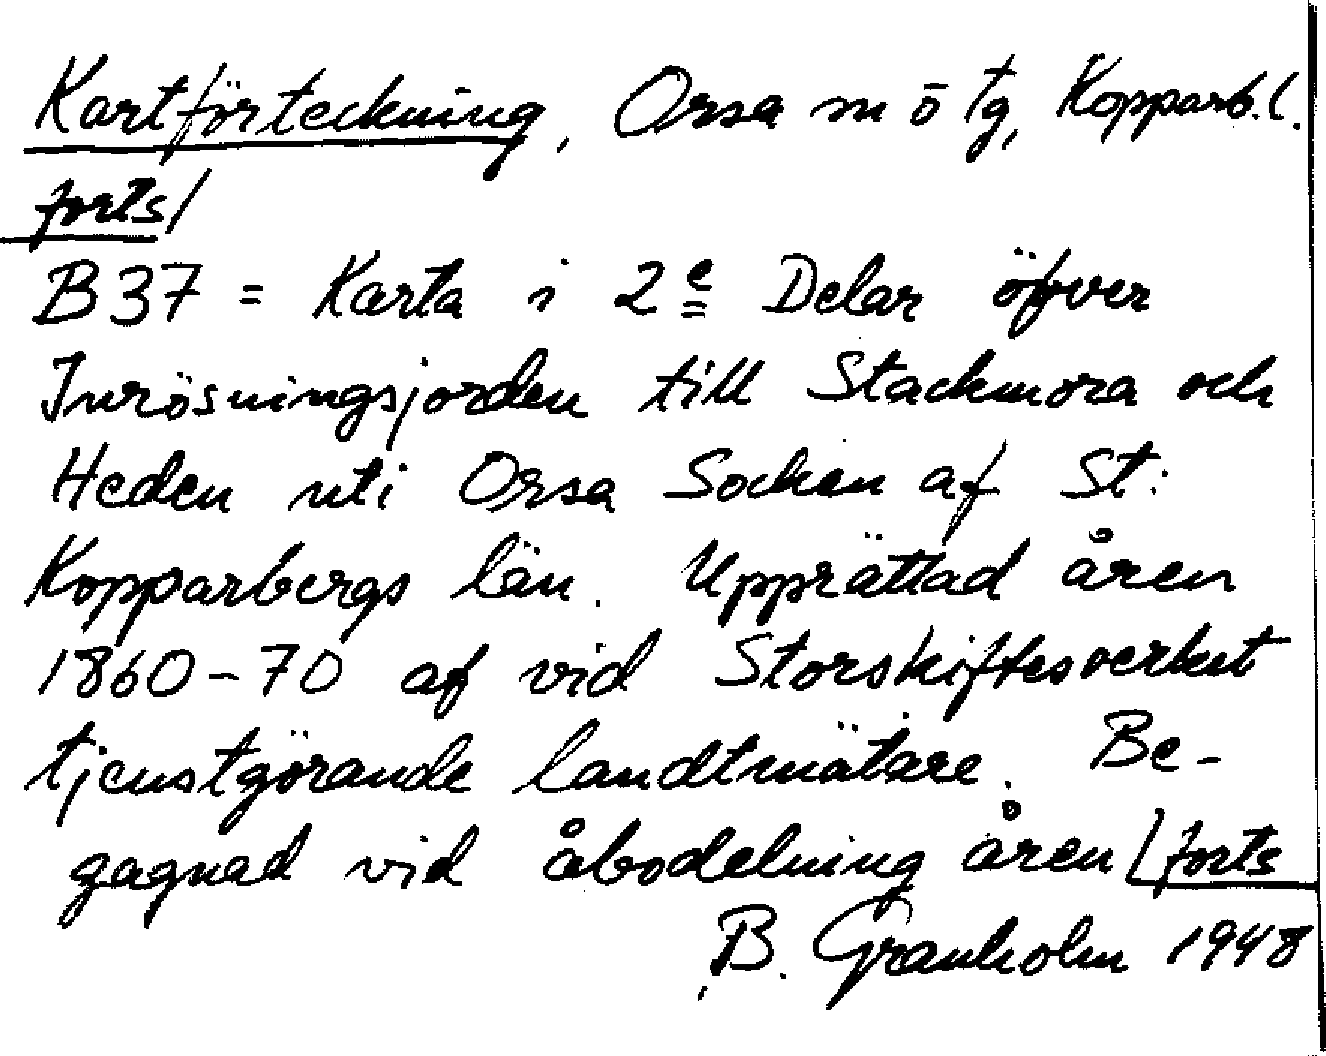 Kartförteckning, Orsa m ö tg, Kopparb.l.
forts/
B37 = Karta i 2e Delar öfver
Inrösningsjorden till Stackmora och
Heden uti Orsa Socken af St:
Kopparbergs län. Upprättad åren
1860-70 af vid Storskiftesverket
tjenstgörande landtmätare. Be-
gagnad vid åbodelning åren /forts
B. Granholm 1948